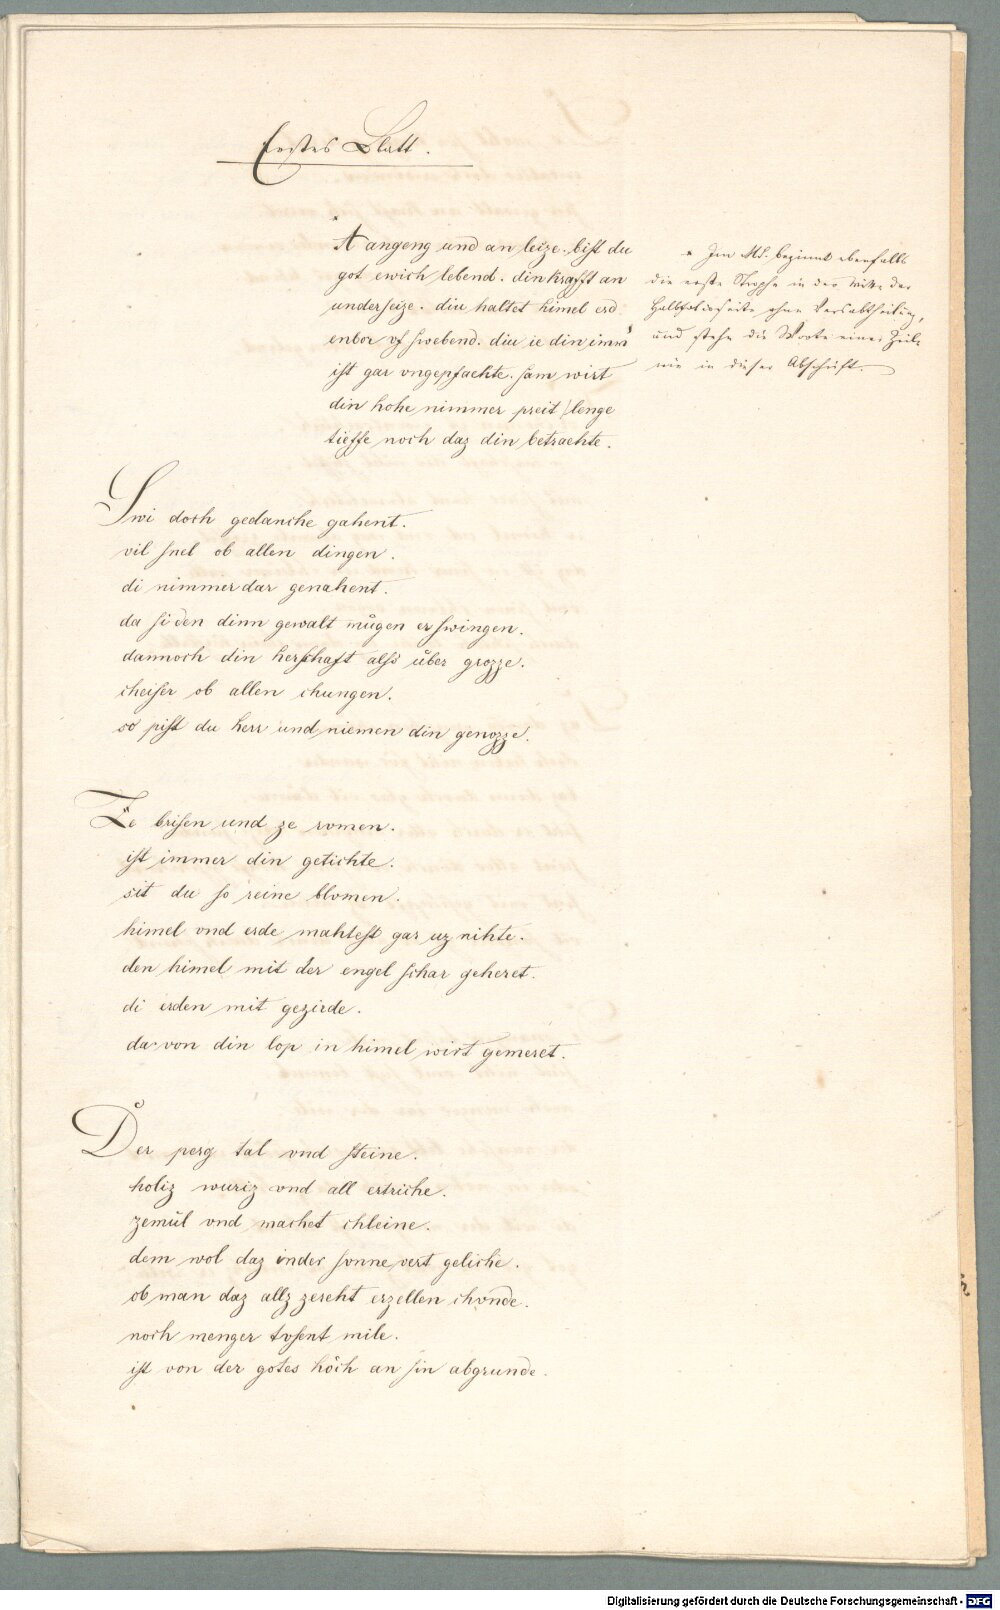 Erstes Blatt.
* A angeng und an leize. bist du
got ewich lebend. din krafft an
underseize. diu haltet himel erd
enbor vf swebend. diu ie din imm
ist gar vngepfachte. sam wirt
din hohe nimmer preit / lenge
tieffe noch daz din betrachte.
* Im MS. beginnt ebenfalls
die erste Strophe in der Mitte der
Halbfolioseite ohne Versabtheilung,
und stehn die Worte einer Zeile
wie in dieser Abschrift.
Swi doch gedanche gahent.
vil snel ob allen dingen.
di nimmer dar genahent.
da si den dinn gewalt můgen erswingen.
dannoch din herschaft also über grozze.
cheiser ob allen chungen.
so pist du herr und niemen din genozze.
Ze brisen und ze romen.
ist immer din getichte.
sit du so reine blomen.
himel vnd erde mahtest gar uz nihte.
den himel mit der engel schar geheret.
di erden mit gezirde.
da von din lop in himel wirt gemeret.
Der perg tal vnd steine.
holtz wurtz vnd all ertriche.
zemül vnd machet chleine.
dem wol daz inder sonne vert geliche.
ob man daz allz zereht erzellen chvnde.
noch menger tvsent mile.
ist von der gotes höch an sin abgrunde.
Digitalisierung gefördert durch die Deutsche Forschungsgemeinschaft - DFG